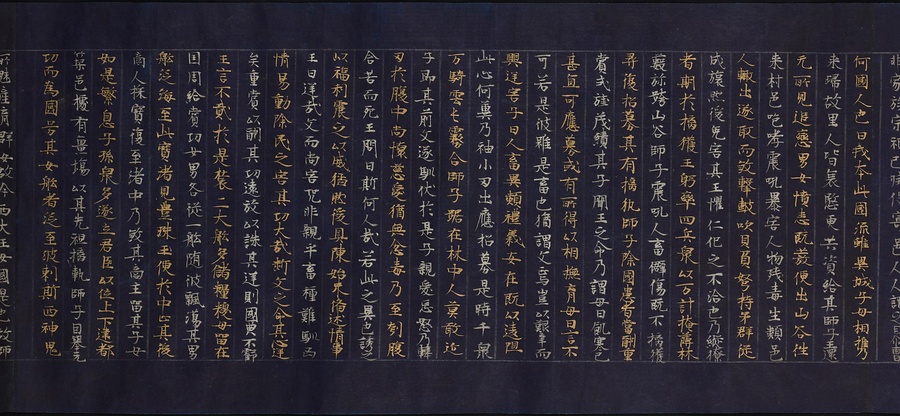 非家族宗祀已滅寄邑人人謂之曰爾曹
何國人也曰我本此國流離異域子母相攜
來歸故里人皆哀愍更共資給其師子王還
无所見追戀男女憤恚既發便出山谷往
來村邑咆哮震吼暴害人物殘毒生類邑
人輒出遂取而致擊鼓吹貝負弩持矛群從
成旅然後免害其王懼仁化之不洽也乃縱獠
者期於擒獲王躬率四兵眾以万計掩薄林
藪旅跨山谷師子震吼人畜僻傷既不擒獲
尋復招募其有擒執師子除國患者當酬重
賞式旌茂績其子聞王之令乃謂母曰飢寒已
甚宜可應募或有所得以相撫育母曰言不
可若是彼雖是畜也猶謂父焉豈以艱辛而
興逆害子曰人畜異類禮義安在既以淺阻
此心何冀乃袖小刃出應招募是時千眾
万騎雲屯霧合師子踞在林中人莫敢近
子即其前父遂馴伏於是乎親愛忘怒乃剚
刃於腹中尚懷慈愛猶無忿毒乃至刳腹
含苦而死王問曰斯何人哉若此之異也誘之
以福利震之以威猛然後具陳始末備述情事
王曰逆哉父而尚害況非親乎畜種難馴凶
情易動除民之害其功大哉斷父之命其心逆
矣重賞以酬其功遠放以誅其逆則國典不虧
王言不貳於是裝二大舩多儲糧糗母留在
国周給賞功女男各從一舩隨彼飄蕩其男
舩泛海至此寶渚見豊珠玉便於中止其後
商人採寶復至渚中乃致其商主留其子女
如是繁息子孫眾多遂立君臣以位上下建都
築邑據有畺埸以其先祖擒執師子因舉元
功而為國号其女舩者泛至波剌斯西神鬼
所魅產育群女故今西大王女國是也故師